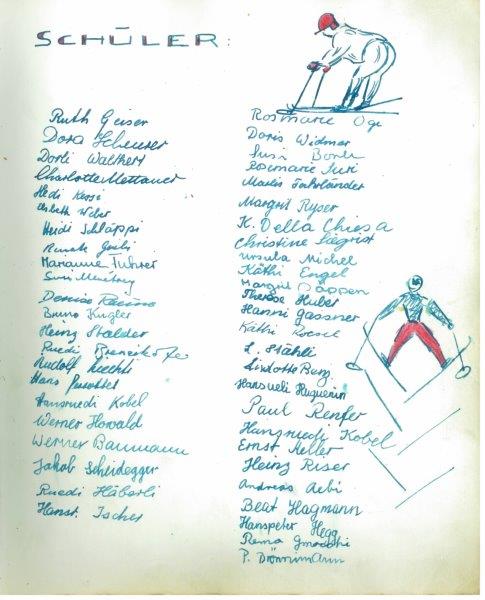 SCHÜLER:
Ruth Geiser
Dora Scheurer
Dorli Walthert
Charlotte Mettauer
Hedi Kessi
Elsbeth Weber
Heidi Schläppi
Renate
Marianne Führer
Susi
Denise
Bruno Kugler
Heinz Stalder
Ruedi Breneikofer
Rudolf Liechti
Hans
Hansruedi Kobel
Werner Howald
Werner Baumann
Jakob Scheidegger
Ruedi Häberli
Hansr. Ischer
Rosmarie Ogi
Doris Widmer
Susi
Rosmarie Suri
Marlis Fahrländer
Margrit Ryser
K. Della Chiesa
Christine Segrist
Ursula Michel
Käthi Engel
Margrit Däppen
Therese Huber
Hanni Gassner
Käthi
L. Stähli
Liselotte Burg
Hansueli Huguenin
Paul Renfer
Hansruedi Kobel
Ernst Keller
Heinz Riser
Andreas Aebi
Beat Hagmann
Hanspeter Hegg
Remo
P. Brönnimann